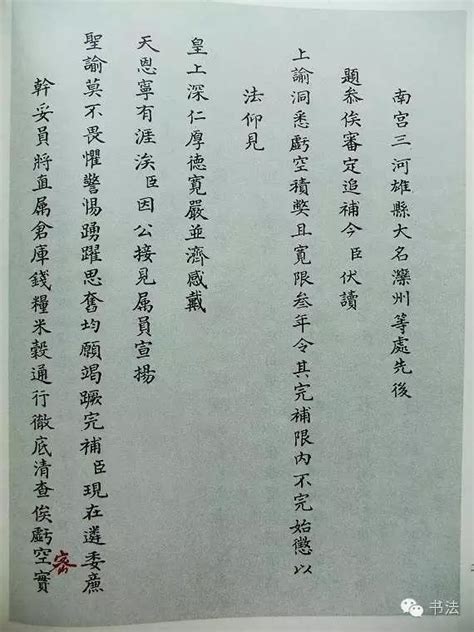 南宮三河雄縣大名灤州等處先後
題參俟審定追補今臣伏讀
上諭洞悉虧空積弊且寬限叁年令其完補限內不完始懲以
法仰見
皇上深仁厚德寬嚴並濟感戴
天恩寧有涯涘臣因公接見属員宣揚
聖諭莫不畏懼警惕踴躍思奮均願竭蹶完補臣現在遴委廉
幹妥員將直属倉庫錢糧米穀通行徹底清查俟虧空實
密
书法